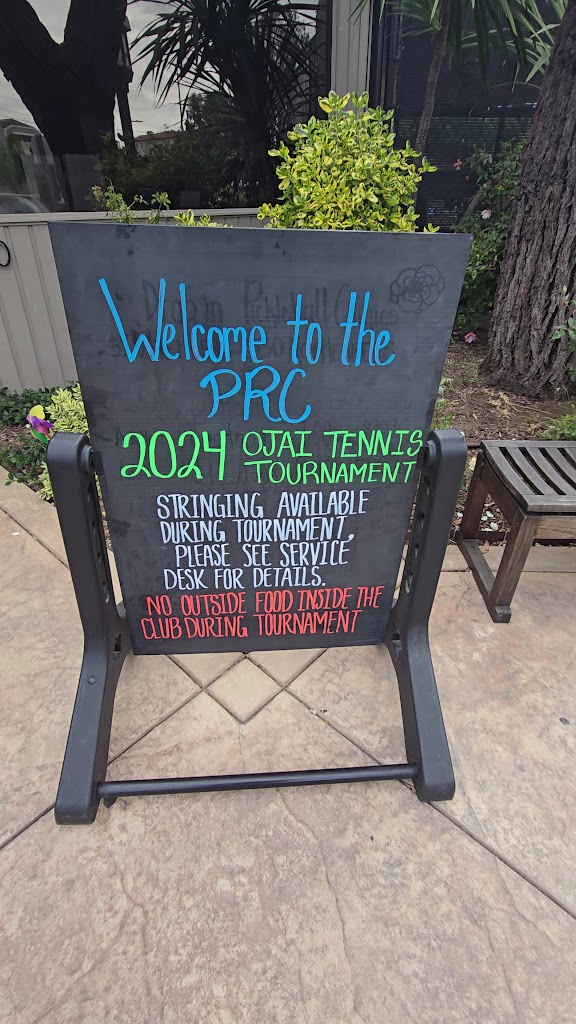 Welcome to the
PRC
2024 OJAI TENNIS
TOURNAMENT
STRINGING AVAILABLE
DURING TOURNAMENT,
PLEASE SEE SERVICE
DESK FOR DETAILS.
NO OUTSIDE FOOD INSIDE THE
CLUB DURING TOURNAMENT